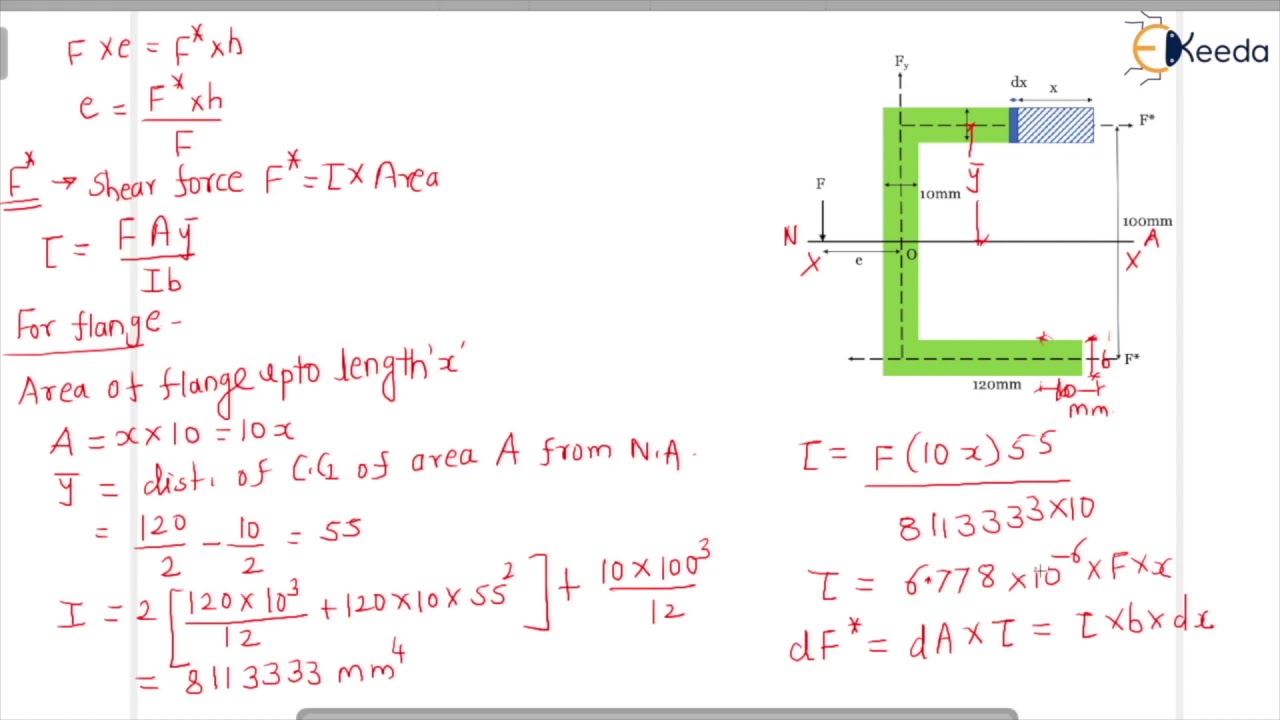 F × e = F* × h
e = F* × h / F
F* → Shear force F* = τ × Area
τ = F A ȳ / I b
For flange -
Area of flange upto length 'x'
A = x × 10 = 10x
ȳ = dist. of C.G of area A from N.A.
= 120/2 - 10/2 = 55
I = 2 [ 120 × 10³ / 12 + 120 × 10 × 55² ] + 10 × 100³ / 12
= 8113333 mm⁴
EKeeda
Fy
dx
x
F*
F
ȳ
10mm
100mm
N
A
X
e
O
X
F*
b
120mm
10
mm
τ = F (10 x) 55 / 8113333 × 10
τ = 6.778 × 10⁻⁶ × F × x
dF* = dA × τ = τ × b × dx